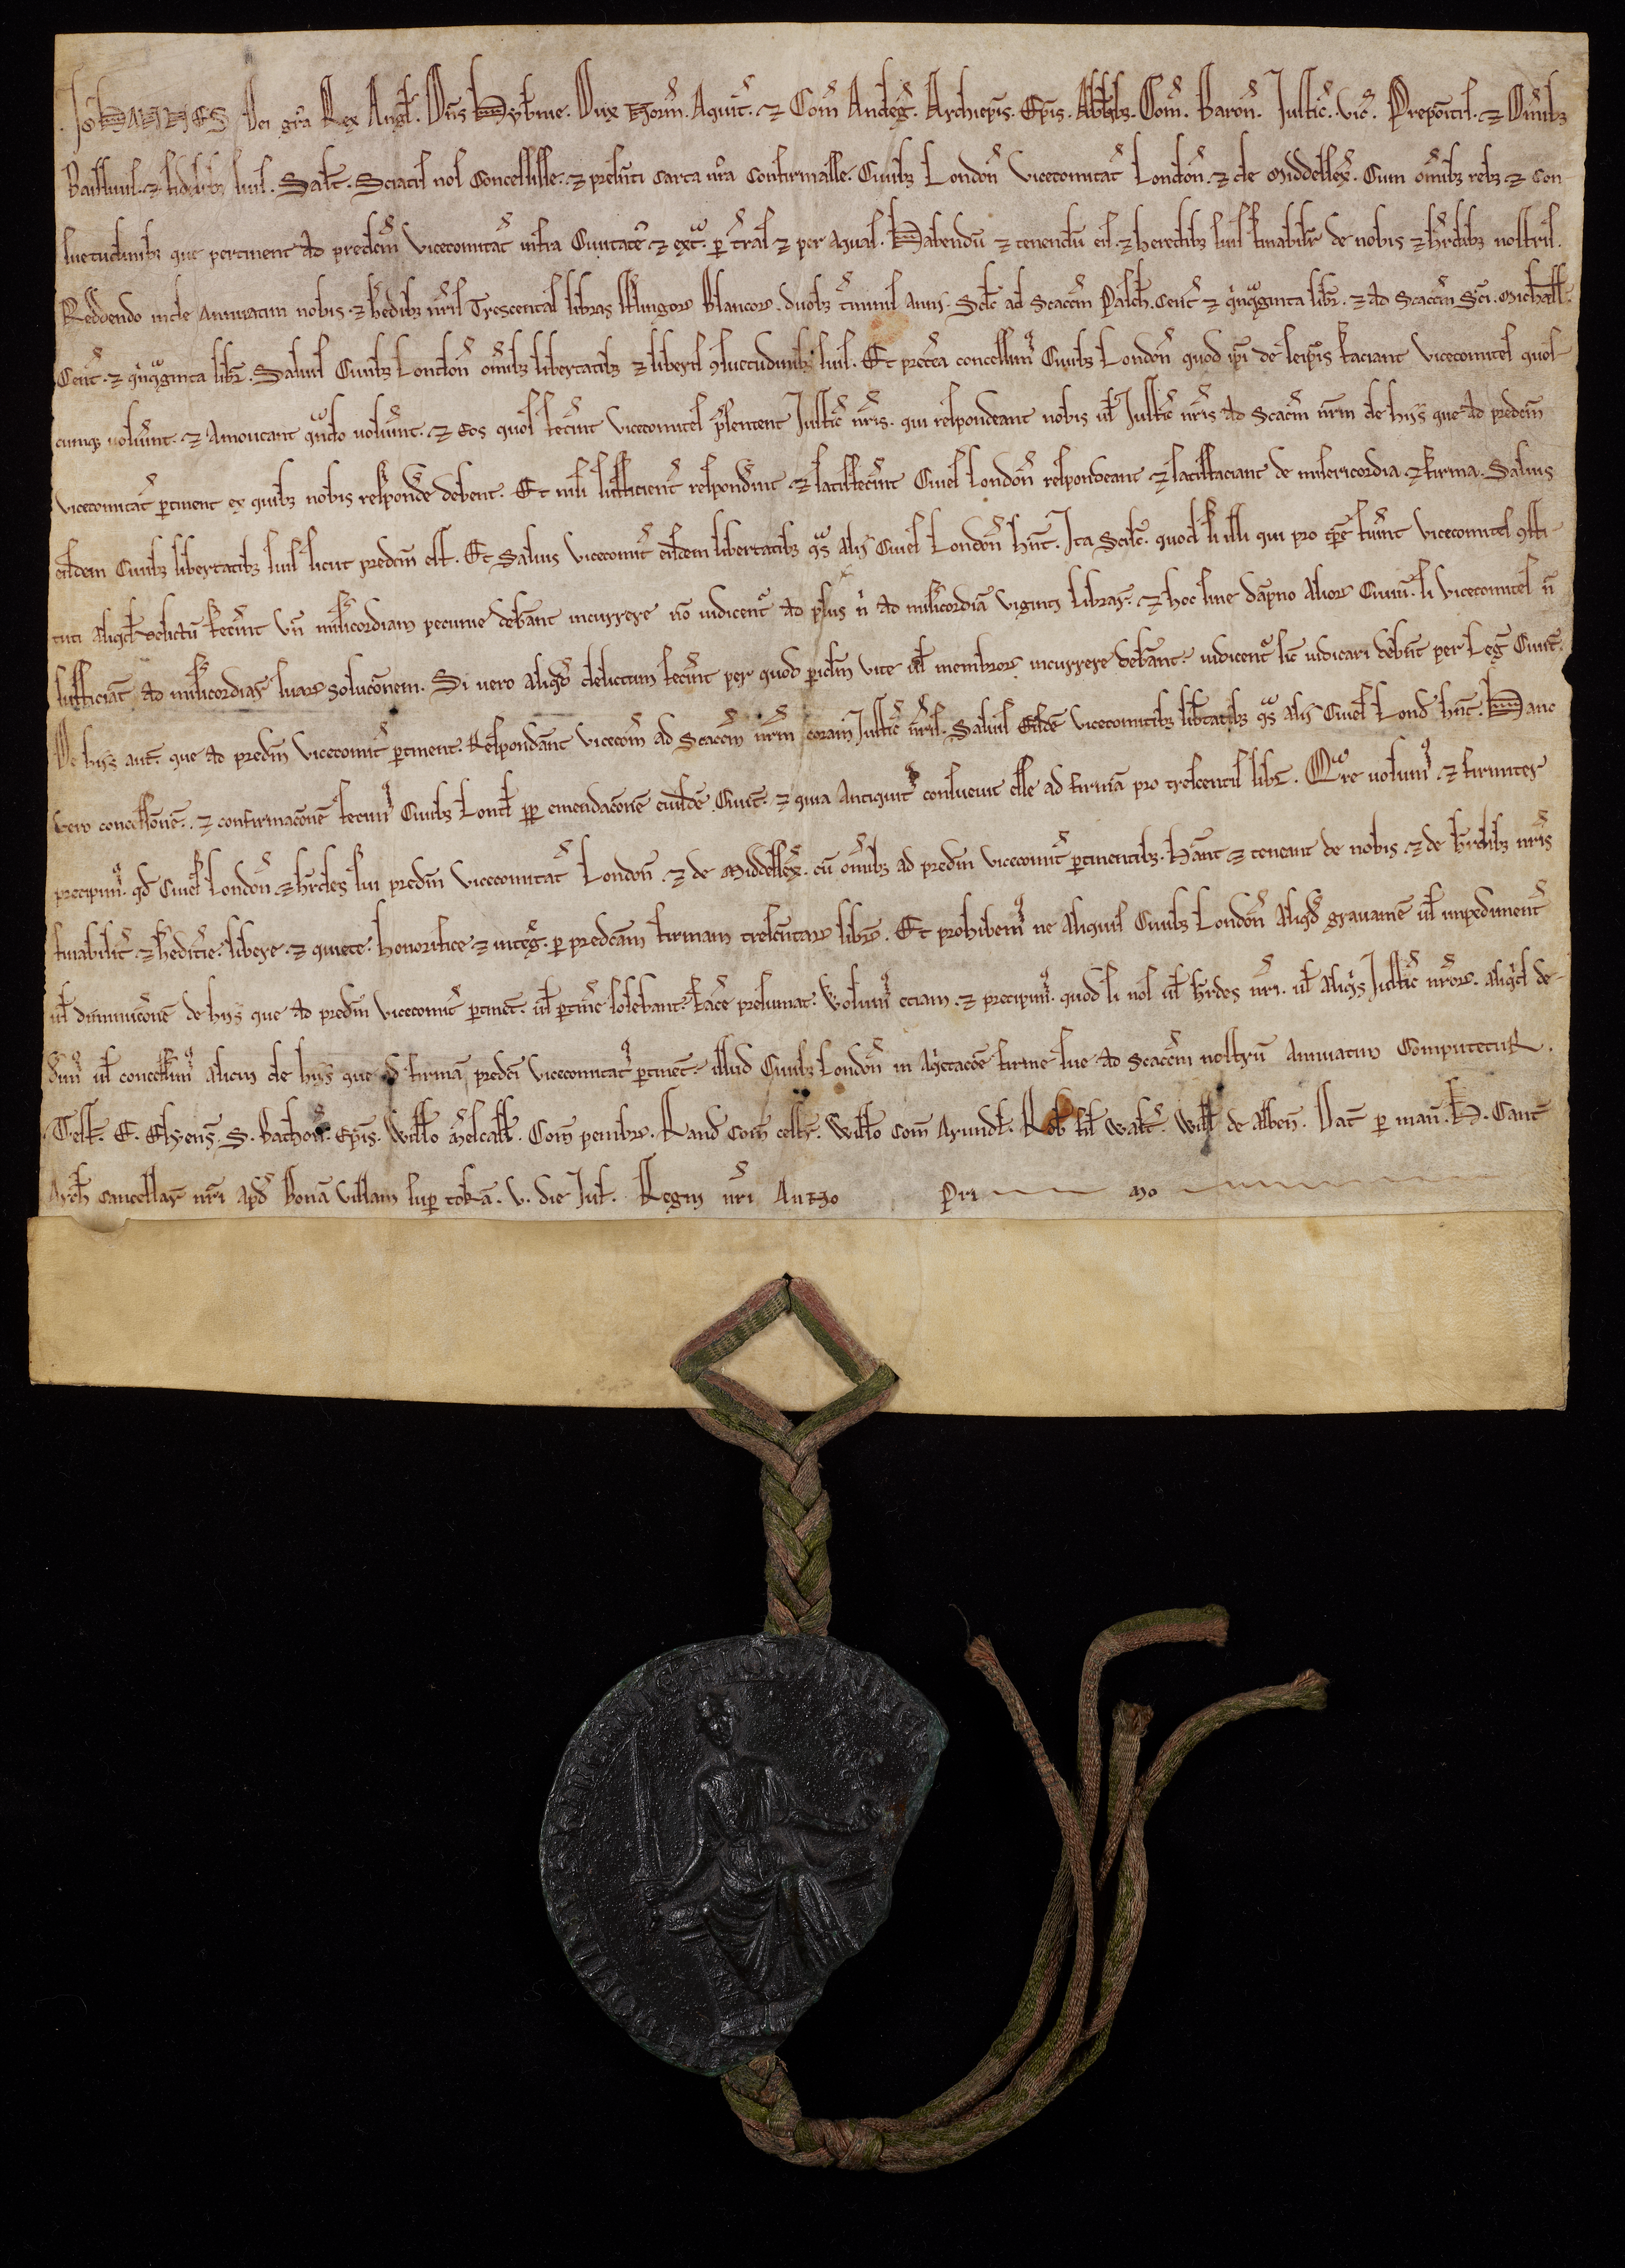 Ioħannes Dei gr̃a Rex Angł. Dñs Hyb̃nie. Dux Norm̃. Aquit̃. ⁊ Com̃ Andeg̃. Archiep̃is. Ep̃is. Abb̃ibȝ. Com̃. Baroñ. Justic̃. vic̃. Prepoĩtis. ⁊ Om̃ibȝ
Baillivis. ⁊ fidelibȝ suis. Salt̃. Sciatis nos Concessisse. ⁊ presẽti carta nr̃a Confirmasse. Civibȝ Londoñ vicecomitat̃ Londoñ. ⁊ de Middelsex̃. Cum om̃ibȝ rebȝ ⁊ Con-
suetudinibȝ que pertinent ad predc̃m vicecomitat̃ infra Civitatẽ ⁊ ext̃. ꝑ t̃ras ⁊ per Aquas. Habendũ ⁊ tenendũ eis. ⁊ heredibȝ suis finabilit̃ de nobis ⁊ h̃edibȝ nostris.
Reddendo inde Annuatim nobis. ⁊ h̃edibȝ nr̃is Trescentas libras sterlingoꝝ blancoꝝ. duobȝ t̃minis anni. Scilc̃ ad Scacc̃m Pasch̃. Cent̃ ⁊ q̃nq̃ginta libr̃. ⁊ ad Scacc̃m Sc̃i. Michaeł.
Cent̃. ⁊ q̃nq̃ginta libr̃. Salvis Civibȝ Londoñ om̃ibȝ libertatibȝ ⁊ liberis ꝯsuetudinibȝ suis. Et pret̃ea concessim⁹ Civibȝ Londoñ quod ip̃i de seip̃is faciant vicecomites quos-
cumqȝ volũint. ⁊ Amoveant qn̄do volũint. ⁊ eos quos fec̃int vicecomites p̃sentent Justic̃ nr̃is. qui respondeant nobis uł Justic̃ nr̃is ad Scacc̃m nr̃m de hijs que ad predc̃m
vicecomitat̃ ꝑtinent ex quibȝ nobis respond̃e debent. Et nisi sufficient̃ respond̃int ⁊ satisfec̃int Cives Londoñ respondeant ⁊ satisfaciant de misericordia ⁊ firma. Salvis
eisdem Civibȝ libertatibȝ suis sicut predc̃m est. Et salvis vicecomit̃ eisdem libertatibȝ q̃s alij Cives Londoñ hñt. Ita Scilc̃. quod si illi qui pro tp̃e fũint vicecomites ꝯsti-
tuti aliqđ delictũ fec̃int vñ mis̃icordiam pecunie debẽant incurrere nõ iudicent̃ ad plus q̃ ad mis̃icordiã viginti librar̃. ⁊ hoc sine dãpno Alioꝝ Civiũ. si vicecomites ñ
sufficiãt ad mis̃icordiar̃ suaꝝ soluc̃onem. Si vero aliqđ delictum fec̃int per quod ꝑiclm̃ vite uł membroꝝ incurrere debẽant. iudicent̃ sic̃ iudicari deb̃nt per Leg̃ Civit̃.
De hijs aut̃. que ad predc̃m vicecomit̃ ꝑtinent. Respondẽant vicecom̃ ad Scacc̃m nr̃m coram Justic̃ nr̃is. Salvis Eisdẽ vicecomitibȝ lib̃tatibȝ q̃s alij Cives Lond̃ hñt. Hanc
vero concess̃onẽ. ⁊ confirmac̃onẽ fecim⁹ Civibȝ Lond̃ ꝓꝑ emendac̃onẽ eiusdẽ Civit̃. ⁊ quia Antiquit⁹ consuevit esse ad firmã pro trescentis libr̃. Qr̃e volum⁹. ⁊ firmiter
precipim⁹. qđ Cives Londoñ. ⁊ h̃edes sui predc̃m vicecomitat̃ Londoñ. ⁊ de Middelsex̃. cũ om̃ibȝ ad predc̃m vicecomit̃ ꝑtinentibȝ. H̃eant ⁊ teneant de nobis. ⁊ de h̃edibȝ nr̃is
finabilit̃. ⁊ h̃editr̃ie. libere. ⁊ quiete. honorifice. ⁊ integ̃. ꝑ predc̃am firmam trescentaꝝ libr̃. Et prohibem⁹ ne aliquis Civibȝ Londoñ aliqđ gravamẽ uł impediment̃
uł diminuc̃onẽ de hijs que ad predc̃m vicecomit̃ ꝑtinẽt. uł ꝑtin̄e solebant. fac̃e presumat. Volum⁹ eciam. ⁊ precipim⁹. quod si nos uł h̃edes nr̃i. uł aliq̃s Justic̃ nr̃oꝝ. aliq̃d de-
d̃im⁹ uł concess̃im⁹ alicui de hijs que ad firmã predc̃i vicecomitat⁹ ꝑtinẽt. illud Civibȝ Londoñ in aq̃etac̃oẽ firme sue ad scacc̃m nostrũ Annuatim Computetur.
Test̃. E. Elyens̃. S. Bathoñ. Ep̃is. Willo Maresc̃all. Com̃ penbroc̃. Rand̃ Com̃ cestr̃. Willo Com̃ Arundł. Rob̃ fił Walt̃. Wiłł de Albeñ. Dat̃ ꝑ mañ. H. Cant̃
Arch̃ Cancellar̃ nr̃i apđ Bonã Villam sup̃ tokã. v. die Juł. Regni nr̃i Anno Pri mo